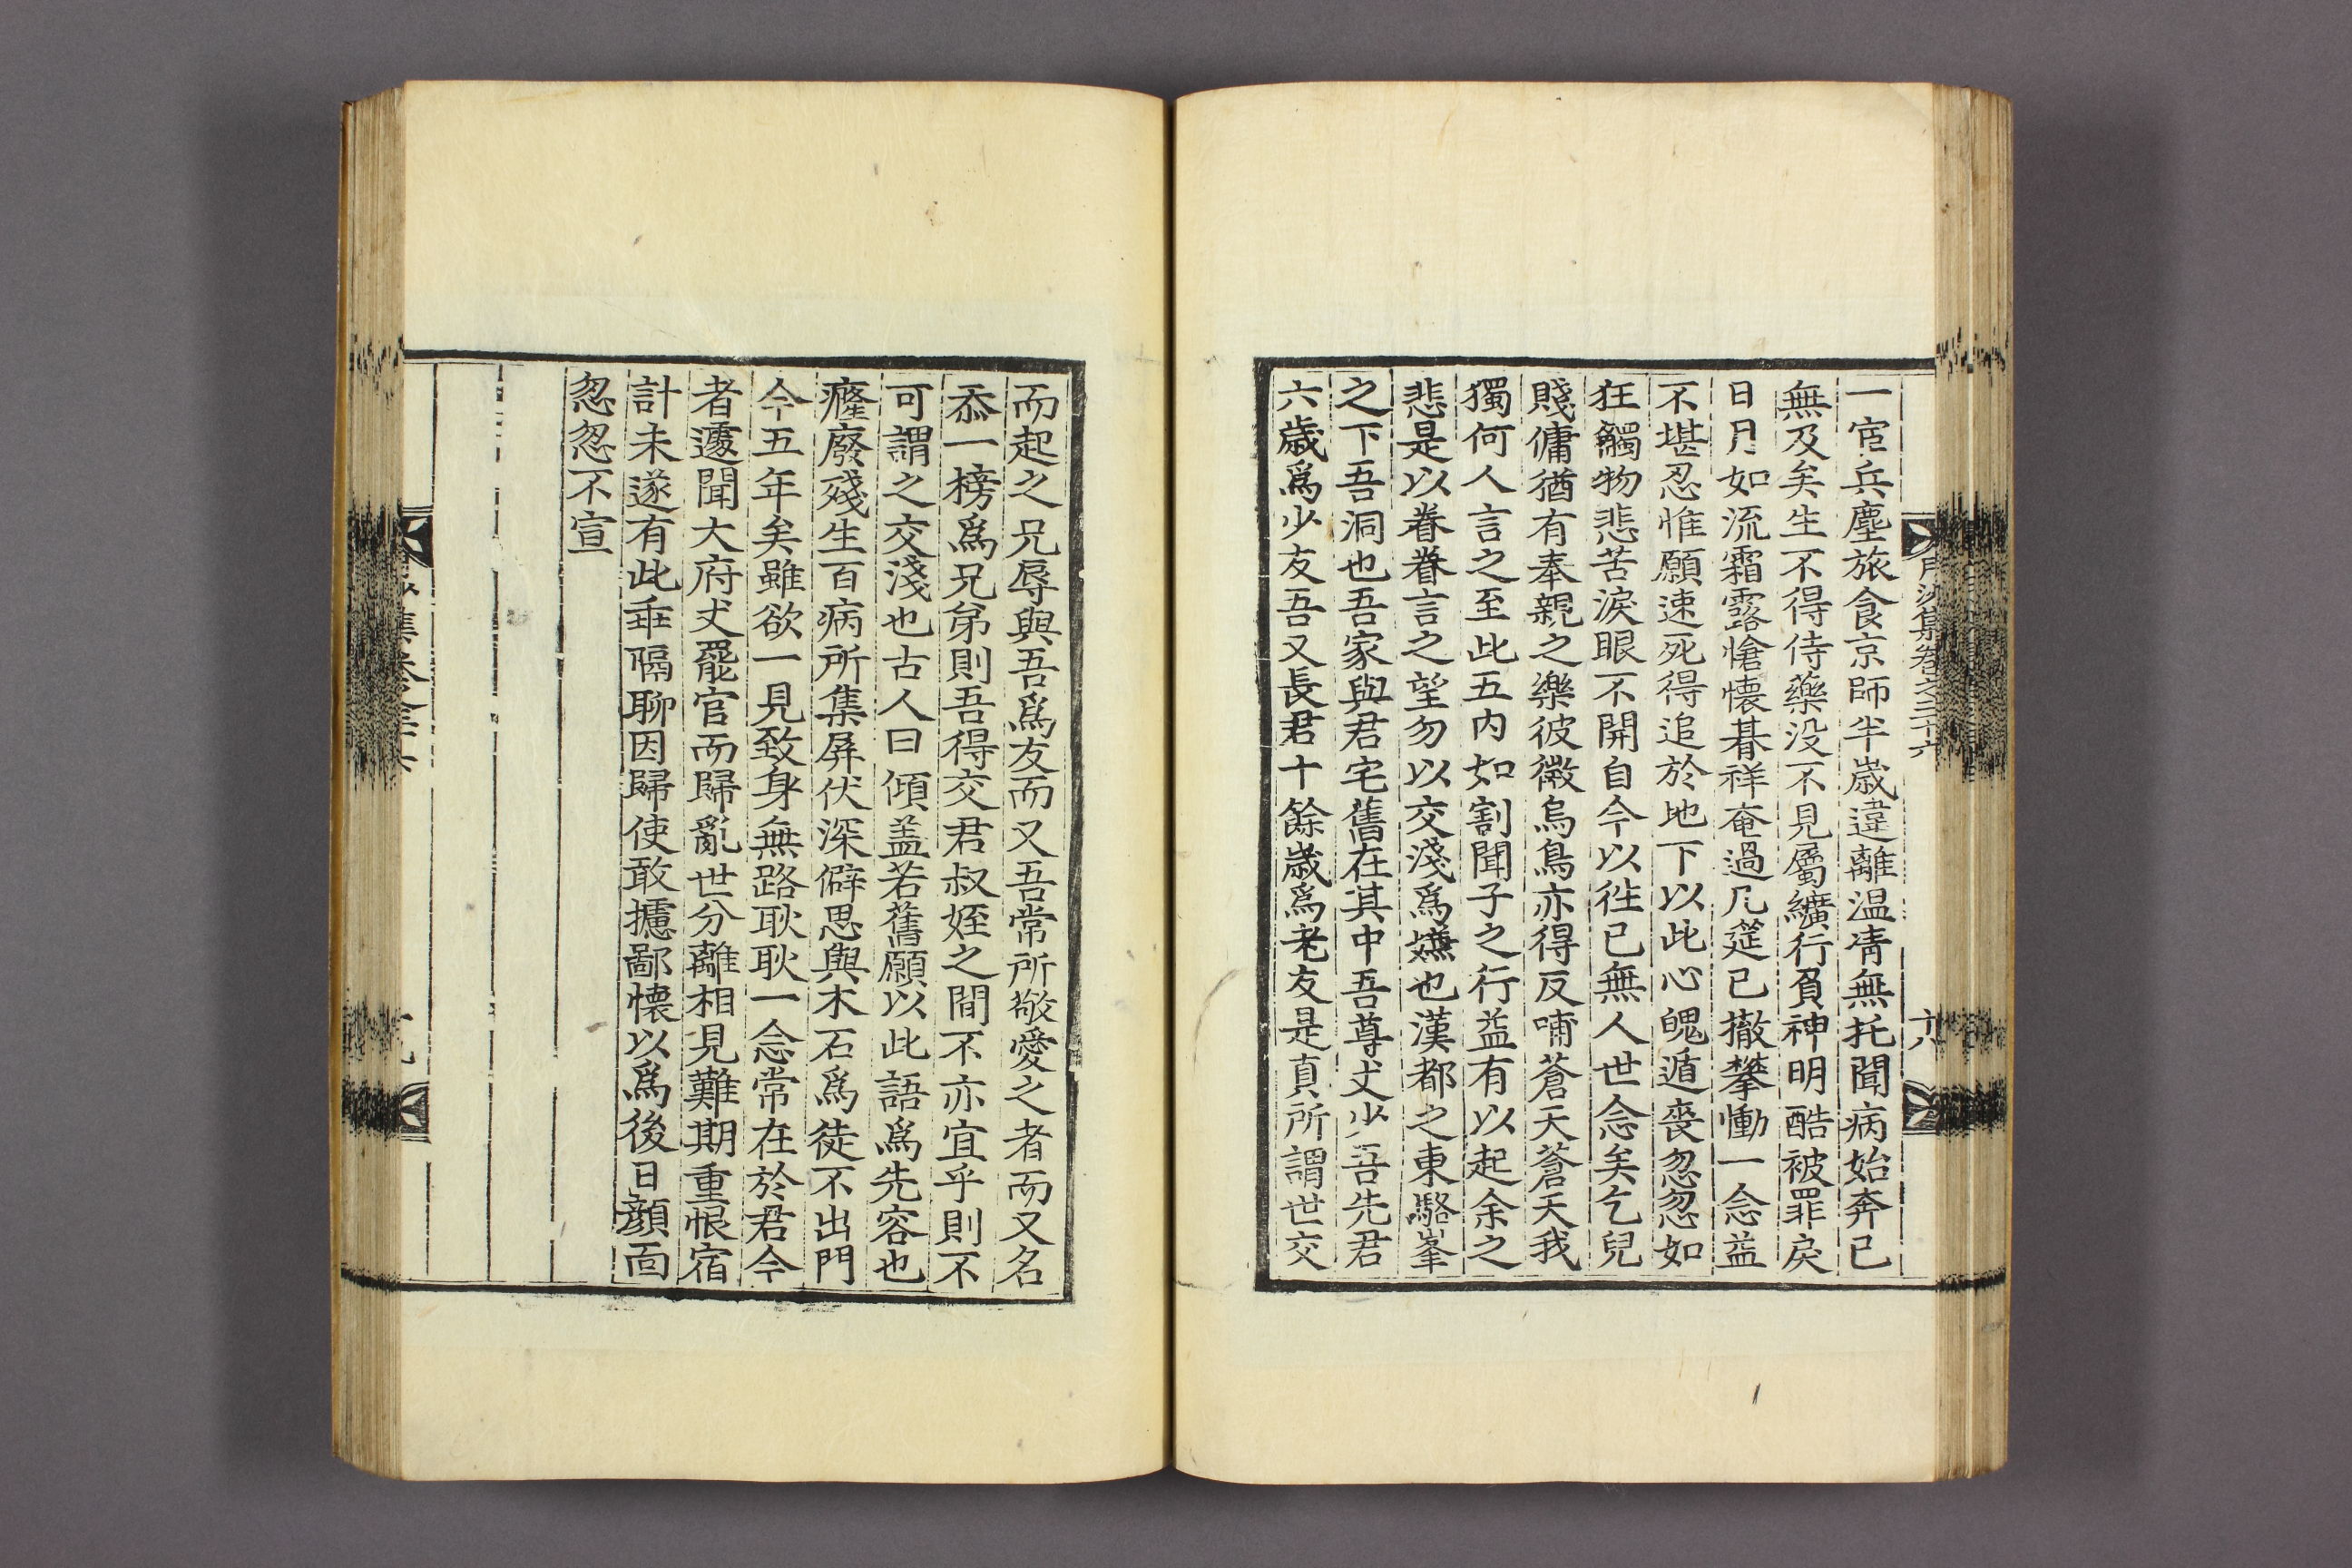 月沙集卷之三十六
十八
一宦兵塵旅食京師半歲違離温凊無托聞病始奔已
無及矣生不得侍藥没不見屬纊行負神明酷被罪戾
日月如流霜露愴懷朞祥奄過几筵已撤攀慟一念益
不堪忍惟願速死得追於地下以此心魄遁喪忽忽如
狂觸物悲苦淚眼不開自今以徃已無人世念矣乞兒
賤傭猶有奉親之樂彼微烏鳥亦得反哺蒼天蒼天我
獨何人言之至此五内如割聞子之行益有以起余之
悲是以眷眷言之望勿以交淺爲嫌也漢都之東駱峯
之下吾洞也吾家與君宅舊在其中吾尊丈少吾先君
六歲爲少友吾又長君十餘歲爲老友是眞所謂世交
而起之兄辱與吾爲友而又吾常所敬愛之者而又名
忝一榜爲兄弟則吾得交君叔姪之間不亦宜乎則不
可謂之交淺也古人曰傾盖若舊願以此語爲先容也
癃廢殘生百病所集屏伏深僻思與木石爲徒不出門
今五年矣雖欲一見致身無路耿耿一念常在於君今
者遽聞大府丈罷官而歸亂世分離相見難期重恨宿
計未遂有此乖隔聊因歸使敢攄鄙懷以爲後日顔面
忽忽不宣
集卷之三十六